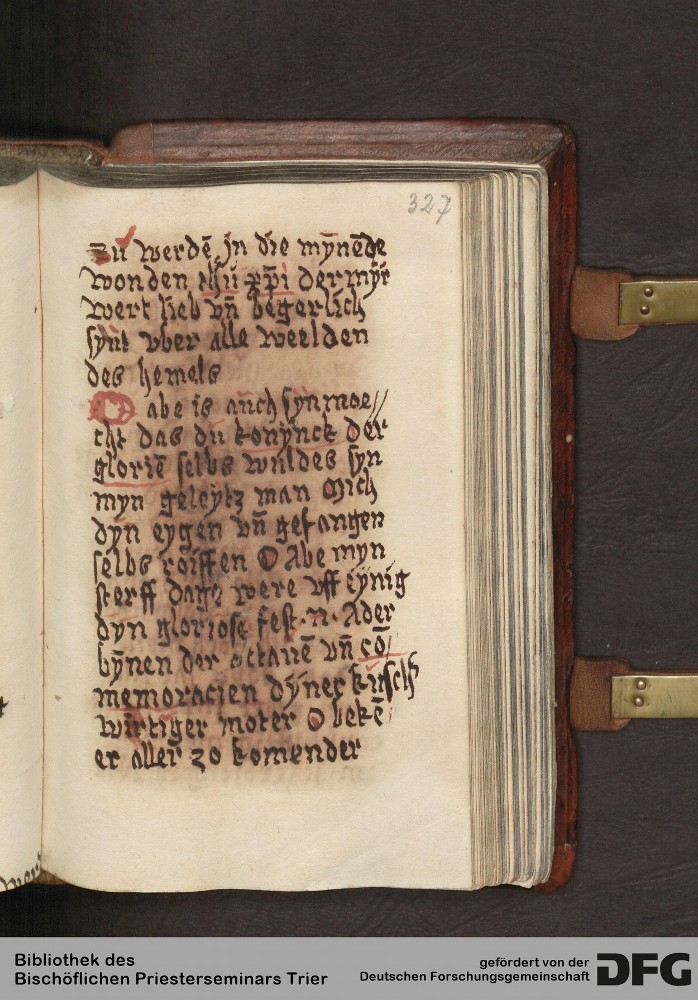 327
zu werdē in die mȳnēde
wonden ihū xp̄i der myr
wert lieb vn̄ begerlich
synt vber alle weelden
des hemels
O abe is auch syn moe//
cht das du konynck der
gloriē selbs wuldes syn
myn geleytz man Mich
dyn eygen vn̄ gefangen
selbs roiffen O Abe myn
sterff dagh were vff eynig
dyn gloriose fest · n · Ader
bynen der octauē vn̄ cō/
memoracien dyner kusch
wirtiger moter O bekē/
er aller zo komender
Bibliothek des
Bischöflichen Priesterseminars Trier
gefördert von der
Deutschen Forschungsgemeinschaft DFG